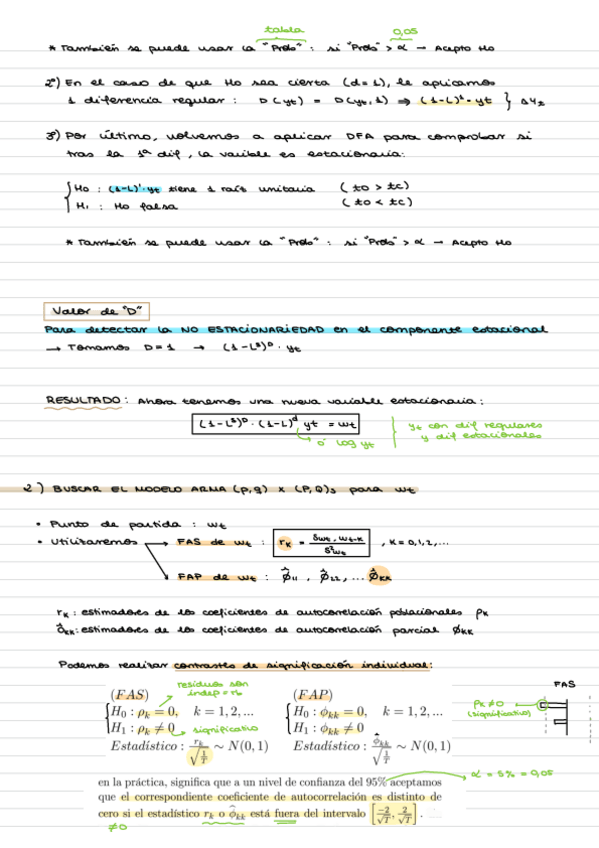 tabla
0,05
* También se puede usar la "Prob" : si "Prob" > α → Acepto Ho
2º) En el caso de que Ho sea cierta (d=1), le aplicamos
1 diferencia regular : D(yt) = D(yt,1) ⇒ (1-L)¹·yt } Δyt
3º) Por último, volvemos a aplicar DFA para comprobar si
tras la 1ª dif, la varible es estacionaria:
Ho : (1-L)¹·yt tiene 1 raíz unitaria (to > tc)
H₁ : Ho falsa (to < tc)
* También se puede usar la "Prob" : si "Prob" > α → Acepto Ho
Valor de "D"
Para detectar la NO ESTACIONARIEDAD en el componente estacional
→ Tomamos D=1 → (1-Lˢ)ᴰ · yt
RESULTADO : Ahora tenemos una nueva variable estacionaria :
(1-Lˢ)ᴰ · (1-L)ᵈ yt = wt
yt con dif regulares
y dif estacionales
o log yt
2) BUSCAR EL MODELO ARMA (p,q) x (P,Q)s para wt
• Punto de partida : wt
• Utilizaremos FAS de wt : rk = Swt, wt-k / S²wt , K = 0,1,2,...
FAP de wt : φ̂11 , φ̂22 ,... φ̂kk
rk : estimadores de los coeficientes de autocorrelación poblacionales ρk
φ̂kk : estimadores de los coeficientes de autocorrelación parcial φkk
Podemos realizar contrastes de significación individual:
residuos son
indep = rb
(FAS) (FAP)
H0 : ρk = 0, k = 1, 2, ... H0 : φkk = 0, k = 1, 2, ...
H1 : ρk ≠ 0 significativo H1 : φkk ≠ 0
Estadístico : rk / √(1/T) ∼ N(0, 1) Estadístico : φ̂kk / √(1/T) ∼ N(0, 1)
FAS
ρk ≠ 0
(significativo)
en la práctica, significa que a un nivel de confianza del 95% aceptamos
α = 5% = 0,05
que el correspondiente coeficiente de autocorrelación es distinto de
cero si el estadístico rk o φ̂kk está fuera del intervalo [-2/√T, 2/√T] .
≠0